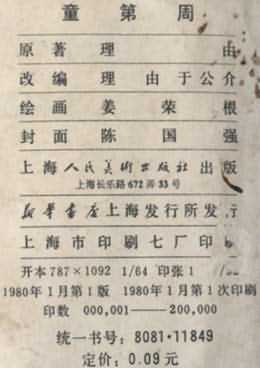 童 第 周
原 著 理 由
改 编 理 由 于公介
绘 画 姜 荣 根
封 面 陈 国 强
上海人民美术出版社出版
上海长乐路672弄33号
新华书店上海发行所发行
上海市印刷七厂印
开本787×1092 1/64 印张1
1980年1月第1版 1980年1月第1次印刷
印数 000,001——200,000
统一书号: 8081·11849
定价: 0.09元